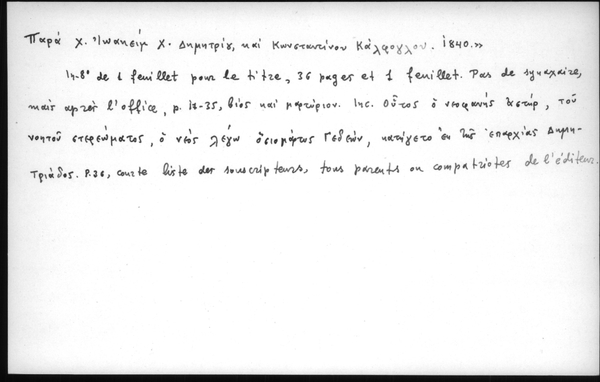 Παρὰ Χ. Ἰωακεὶμ Χ. Δημητρίȣ, καὶ Κωνσταντίνου Κάλφογλου. 1840.»
In-8° de 1 feuillet pour le titre, 36 pages et 1 feuillet. Pas de synaxaire,
mais après l'office, p. 18-35, βίος καὶ μαρτύριον. Inc. Οὗτος ὁ νεοφανὴς ἀστήρ, τοῦ
νοητοῦ στερεώματος, ὁ νέος λέγω ὁσιομάρτυς Γεδεών, κατήγετο ἐκ τῆς ἐπαρχίας Δημη-
τριάδος. P. 36, courte liste des souscripteurs, tous parents ou compatriotes de l'éditeur.